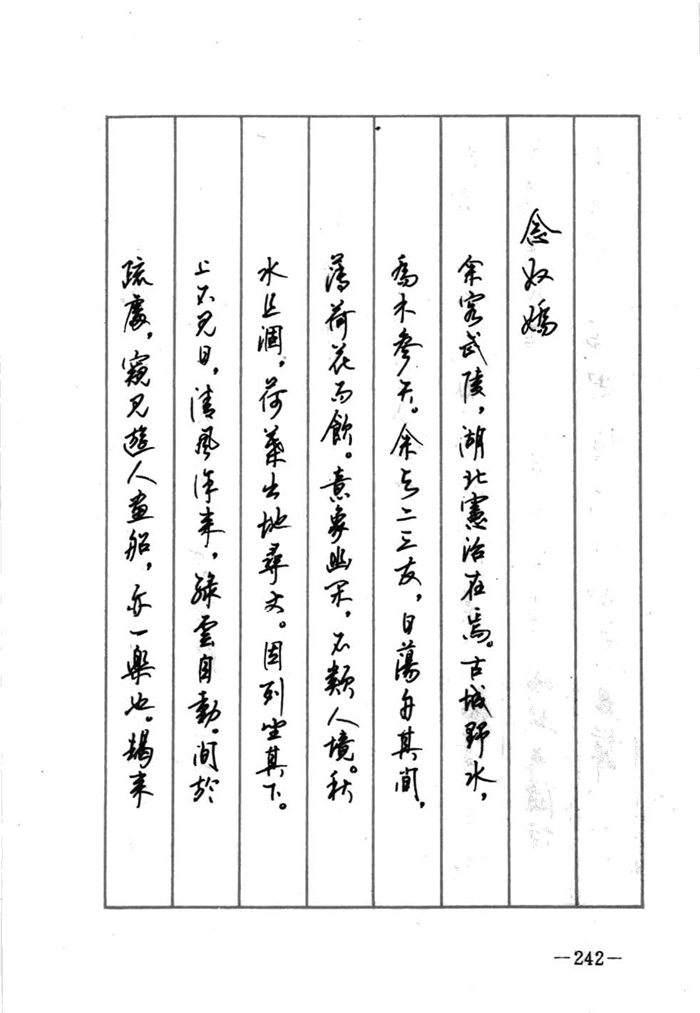 念奴嬌
余客武陵，湖北憲治在焉。古城野水，
喬木參天。余与二三友，日蕩舟其间，
薄荷花而飲。意象幽闲，不類人境。秋
水且涸，荷葉出地尋丈。因列坐其下。
上不见日，清風徐来，綠雲自動。间於
疏處，窺见遊人畫船，亦一樂也。朅来
—242—